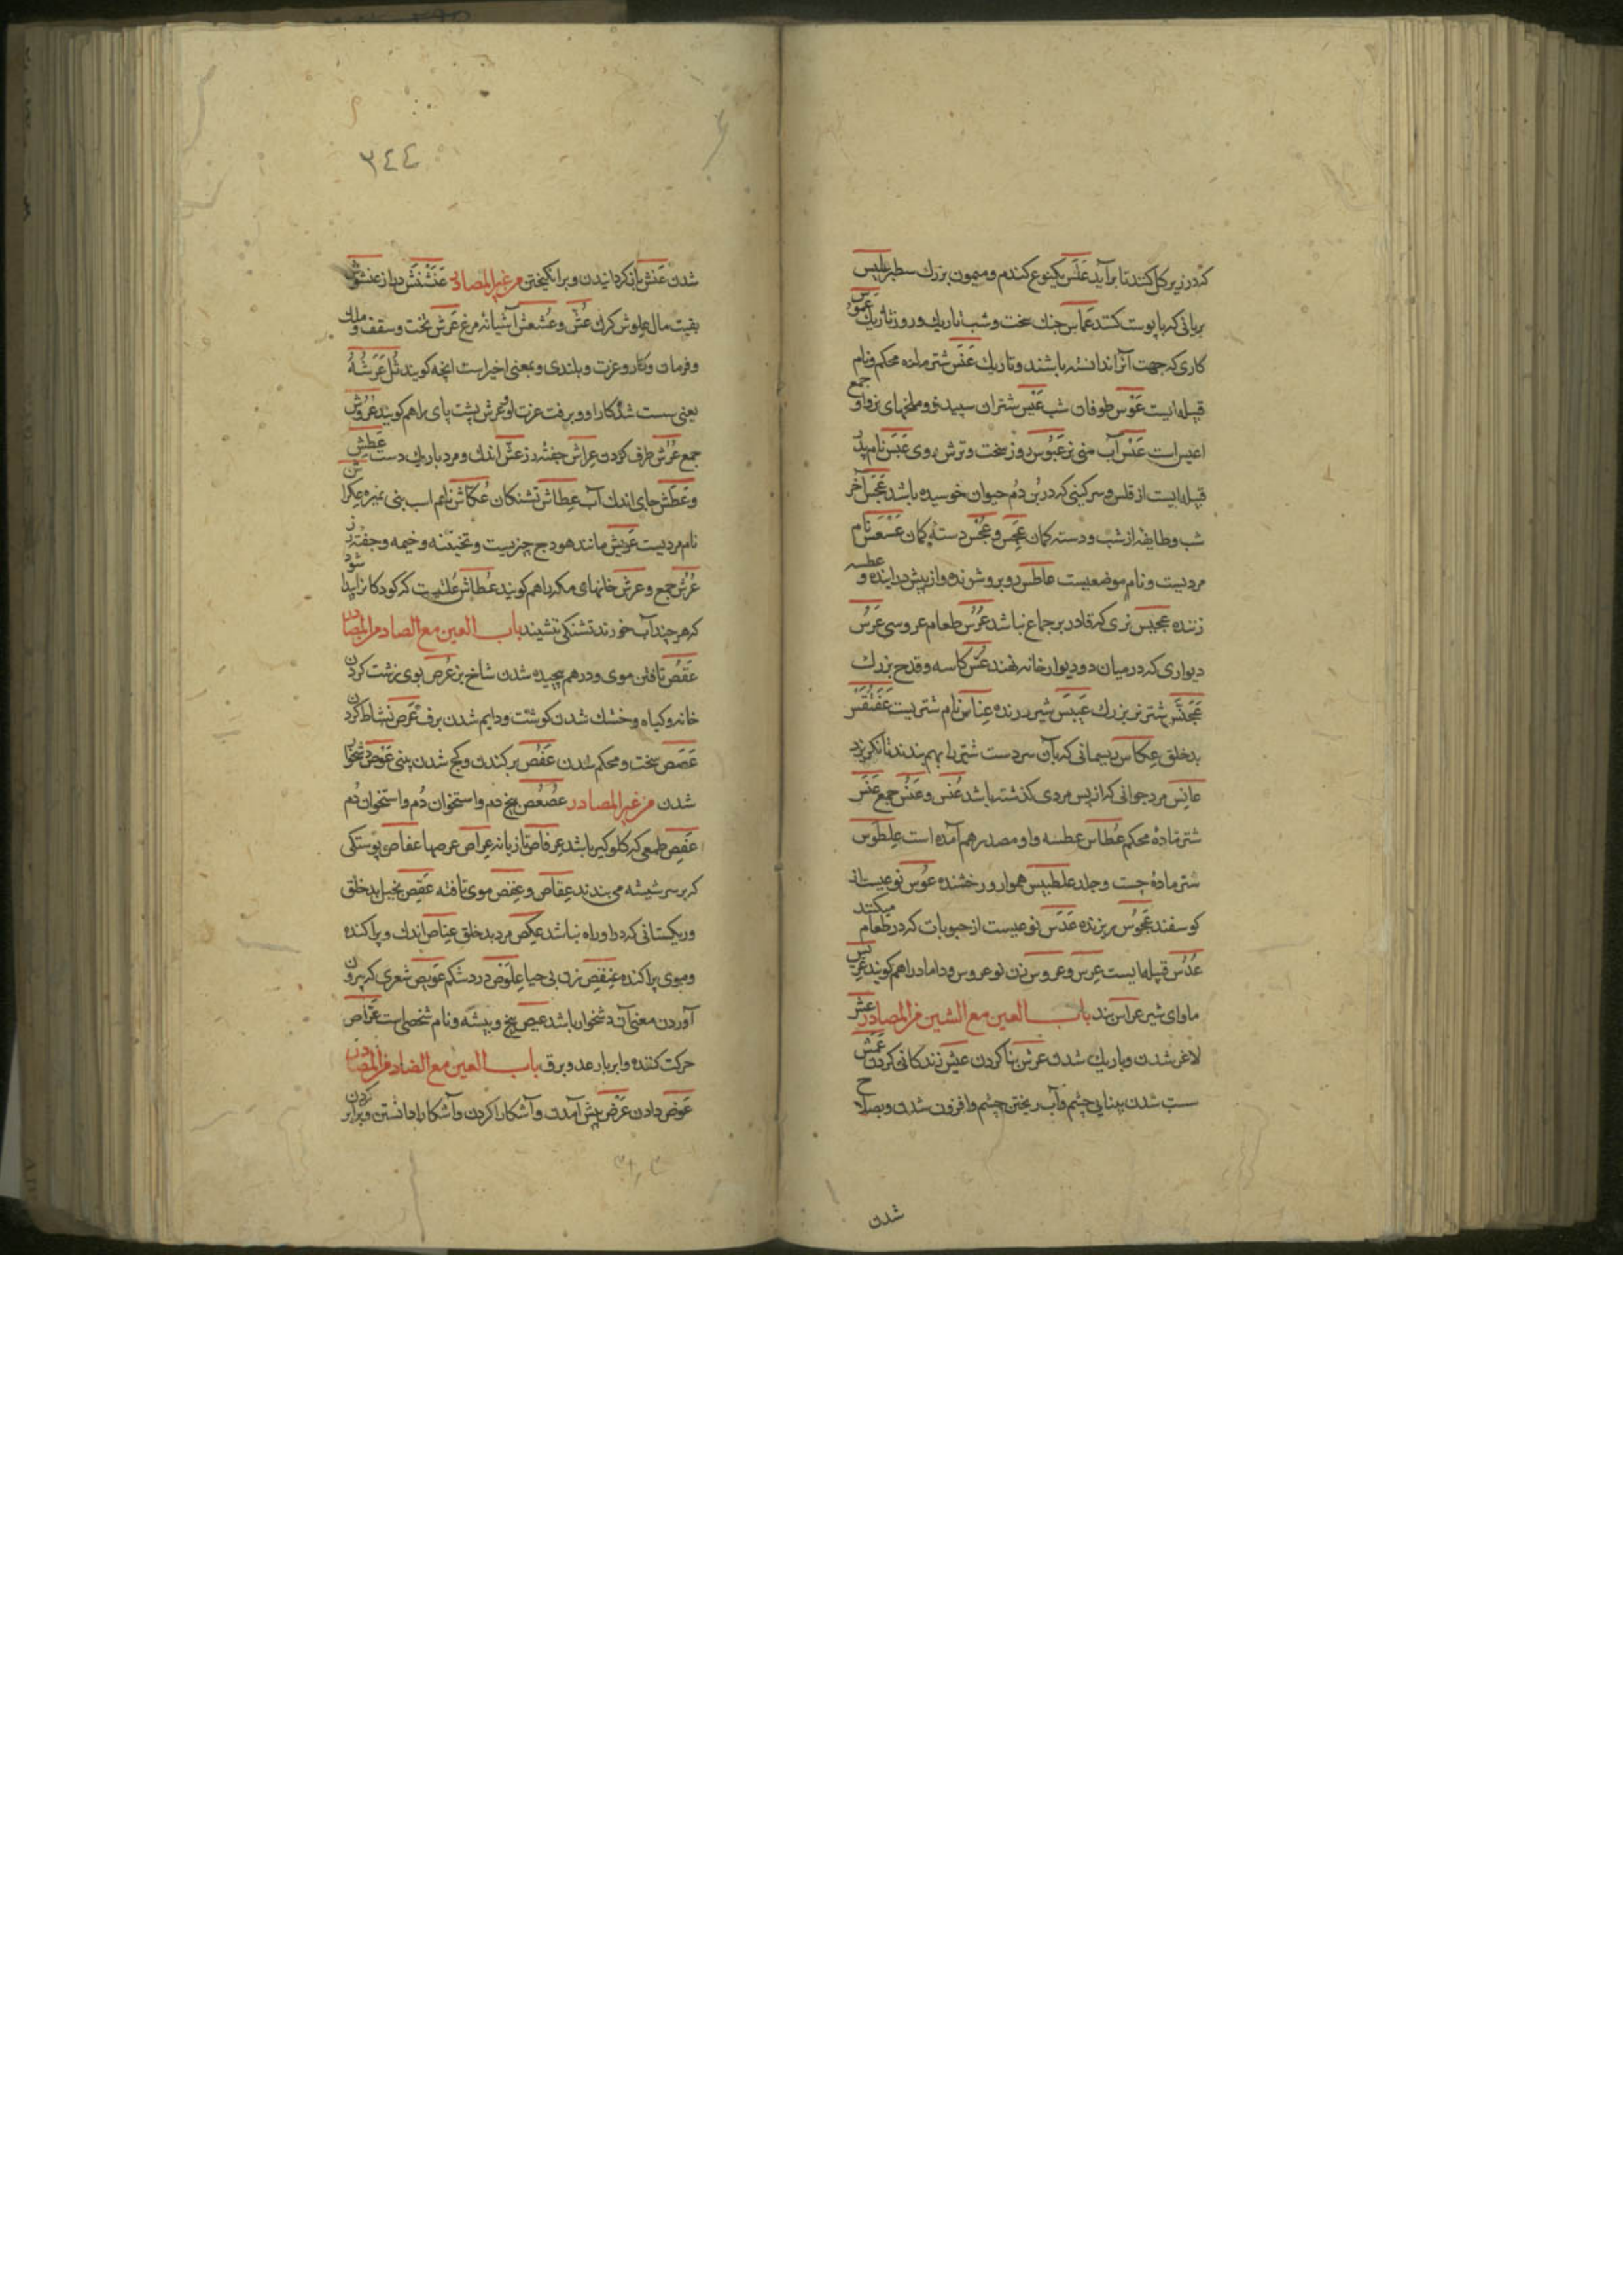 که در زیر کل کنند تا برآید عَلَس یکنوع کندم و میمون بزرك سطبر علیس
بریانی که با پوست کنند عَماس جنك سخت و شب تاریك و روز تاریك عموس
کاری که جهت آنرا ندانسته باشند و تاریك عَنَس شتر ماده محکم و نام
قبیله ایست عَوْس طوفان شب عیْس شتران سپید و ملخهای نر و او جمع
اعیس است عَنس آب منی نر عَبُوس روز سخت و ترش روی عَبَس نام پدر
قبیله ایست از قلس و سرکینی که در بُن دُم حیوان خوسیده باشد عَجَس آخر
شب و طایفه از شب و دسته کمان عَجِس و عُجْس دسته کمان عَسْعَس نام
مردیست و نام موضعیست عاطس روبرو شونده و از پیش درآینده و عطسه
زننده عجیس نری که قادر بر جماع نباشد عُرُس طعام عروسی عَرَس
دیواری که در میان دو دیوار خانه نهند عُسّ کاسه و قدح بزرك
عَجَنَّس شتر نر بزرك عَبَبَس شیر درنده عِناس نام شتریست عَفَنْقَس
بدخلق عِکاس ریسمانی که بآن سر دست شتر را بهم بندند تا نکریزد
عانِس مرد جوانی که از پس مردی کذشته باشد عُنس و عُنُس جمع عَنَس
شتر مادۀ محکم عُطاس عطسه و او مصدر هم آمده است عِلطَوس
شتر مادۀ چست و جلد علطبیس هموار و رخشنده عُوس نوعیست از
کوسفند عَجُوس ریزنده عَدَس نوعیست از حبوبات که در طعام میکنند
عُدُس قبیله ایست عِرس و عروس زن نو عروس و داماد را هم کویند عرّیس
ماوای شیر عراس بند باب العین مع الشین من المصادر عش
لاغر شدن و باریك شدن عرش بنا کردن عیش زندکانی کردن عَمَش
سست شدن بینایی چشم و آب ریختن چشم و افزون شدن و بصلاح
شدن
٣٤٤
شدن عَنش باز کردانیدن و برانکیختن من غیر المصادر عَنَشْنَش دراز عنشوش
بقیت مال عِلوش کرك عُشّ و عُشعش آشیانه مرغ عَرش تخت و سقف و ملك
و فرمان و کار و عزت و بلندی و بمعنی اخیر است انچه کویند ثُلّ عَرَشُهُ
یعنی سست شد کار او و برفت عزت او و عرش پشت پای را هم کویند عُرُوش
جمع عُرُش طرف کردن عِراش جفته رز عَشّ اندك و مرد باریك دست عَطِش
و عَطَش جای اندك آب عِطاش تشنکان عُکّاش نام اسب بنی نمیر و عِکراش
نام مردیست عَریش مانند هودج چزیست و تختبنه و خیمه و جفته رز
عُرُش جمع و عرش خانهای مکه را هم کویند عُطاش علتیست که کودکانرا پیدا شود
که هر چند آب خورند تشنکی ننشیند باب العین مع الصاد من المصادر
عَقص تافتن موی و در هم پیچیده شدن شاخ بز عُرص بوی زشت کردن
خانه و کیاه و خشك شدن کوشت و دایم شدن برف عَرَص نشاط کردن
عَصَص سخت و محکم شدن عَفْص برکندن و کج شدن بینی عَوَص دشخوار
شدن من غیر المصادر عُصْعُص بیخ دم و استخوان دُم و استخوان دُم
عَفِص طعمی که کلوکیر باشد عِرفاص تازیانه عِراص عرصها عفاص پوستکی
که بر سر شیشه می بندند عِقاص و عِقص موی تافته عَقِص بخیل بدخلق
و ریکستانی که درو راه نباشد عکِص مرد بدخلق عِناص اندك و پراکنده
و موی پراکنده عِنفِص زن بی حیا عِلَّوص درد شکم عَویص شعری که بیرون
آوردن معنی آن دشخوار باشد عیص بیخ و بیشه و نام شخصی است عَرّاص
حرکت کننده و ابر با رعد و برق باب العین مع الضاد من المصادر
عَوض دادن عَرْض پیش آمدن و آشکارا کردن و آشکارا دانستن و برابر کردن